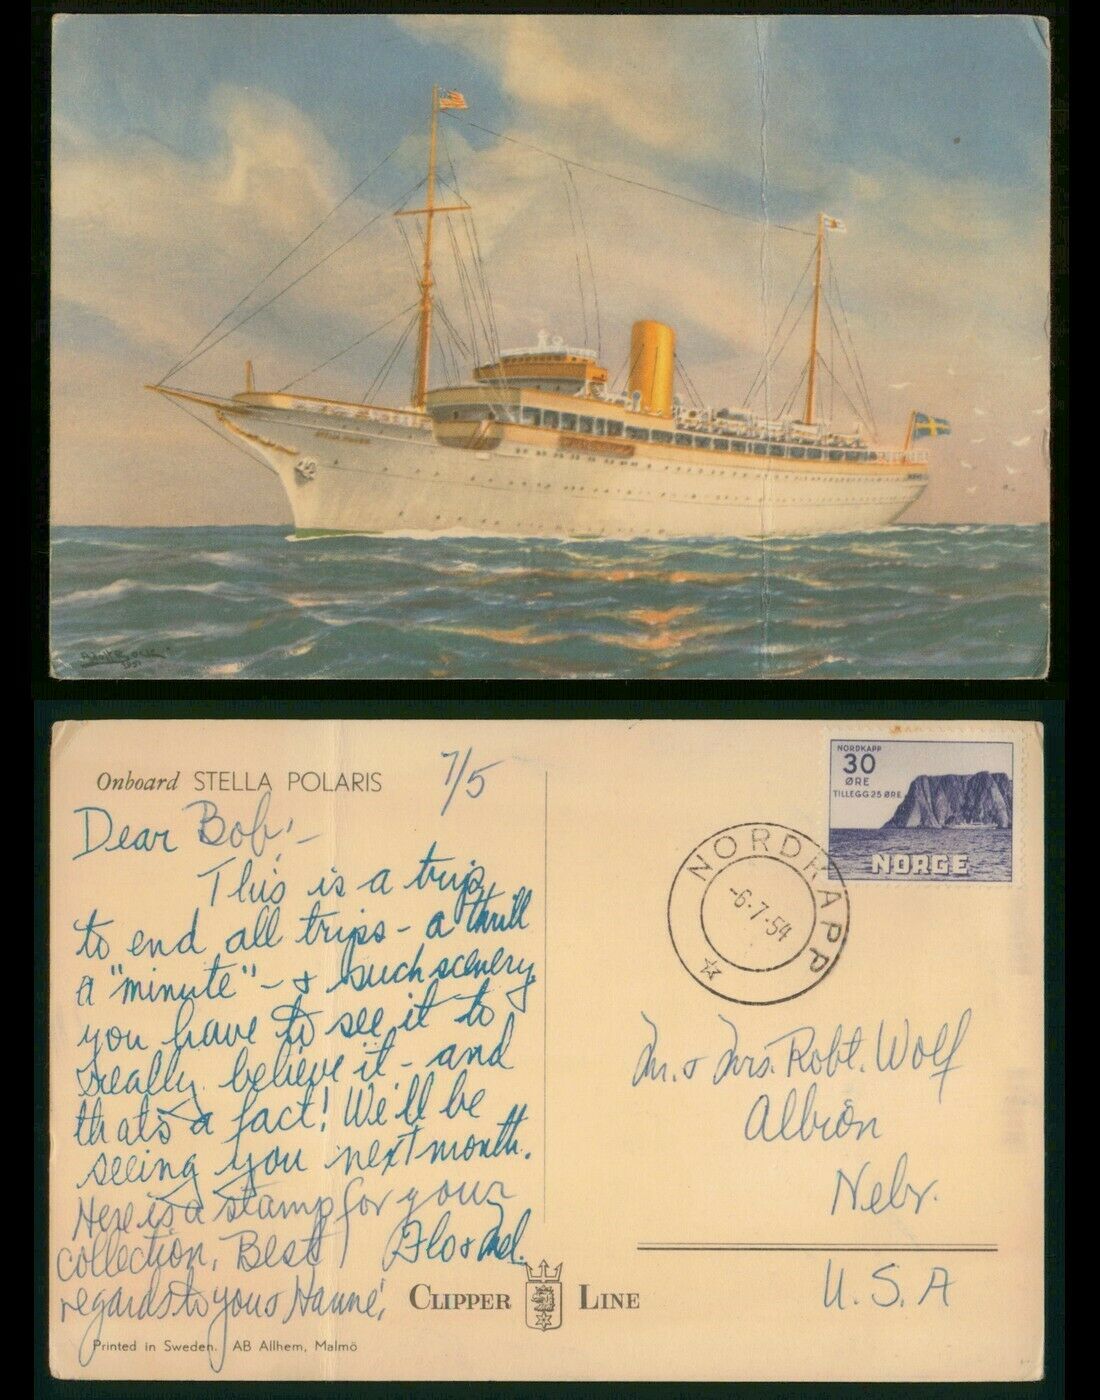 STELLA POLARIS
1951
Onboard STELLA POLARIS
7/5
Dear Bob,-
This is a trip
to end all trips - a thrill
a "minute" - & such scenery,
you have to see it to
really believe it - and
thats a fact! We'll be
seeing you next month.
Here is a stamp for your
collection. Best
regards to you & Nanne,
Flo & Mel.
CLIPPER LINE
Printed in Sweden. AB Allhem, Malmö
NORDKAPP
30
ØRE
TILLEGG 25 ØRE
NORGE
NORDKAPP
-6.7.54
Mr. & Mrs. Robt. Wolf
Albion
Nebr.
U.S.A